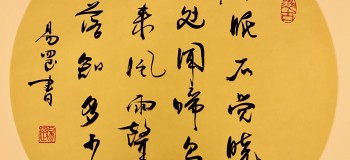 眠不觉晓
处闻啼鸟
来风雨聲
落知多少
易書